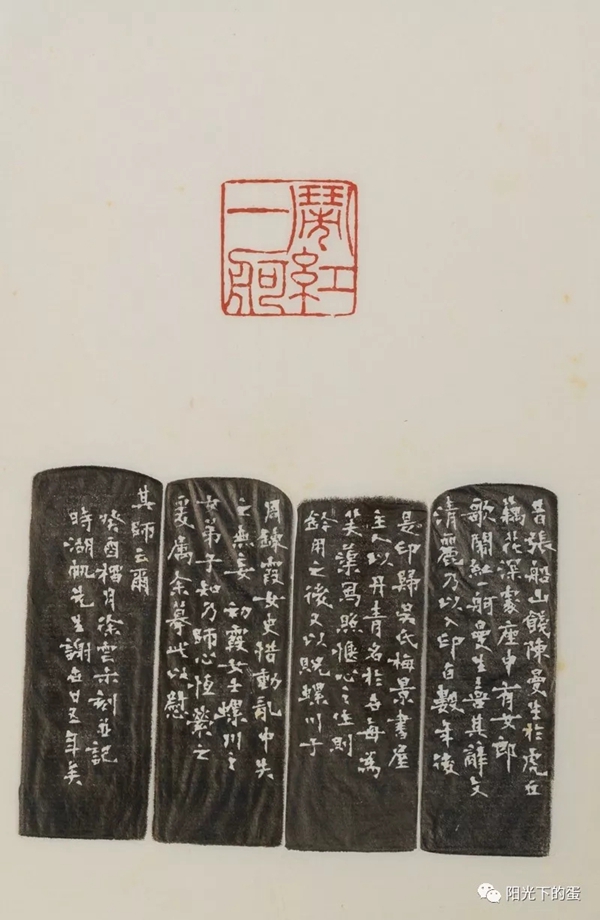 鬧紅
一舸
昔張船山餞陳曼生於虎丘
藕花深處座中有女郎
歌鬧紅一舸曼生喜其辭文
清麗乃以入印百數年後
是印歸吴氏梅景書屋
主人以丹青名於世每為
芙蕖寫照愜心之作則
鈐用之後又以貺螺川子
周鍊霞女史惜動亂中失
之無妄霞女士螺川之
女弟子知乃師心恆縈之
爰属余摹此以慰
其師云爾
癸酉榴月徐雲叔刻並記
時湖帆先生謝世廿五年矣
阳光下的蛋